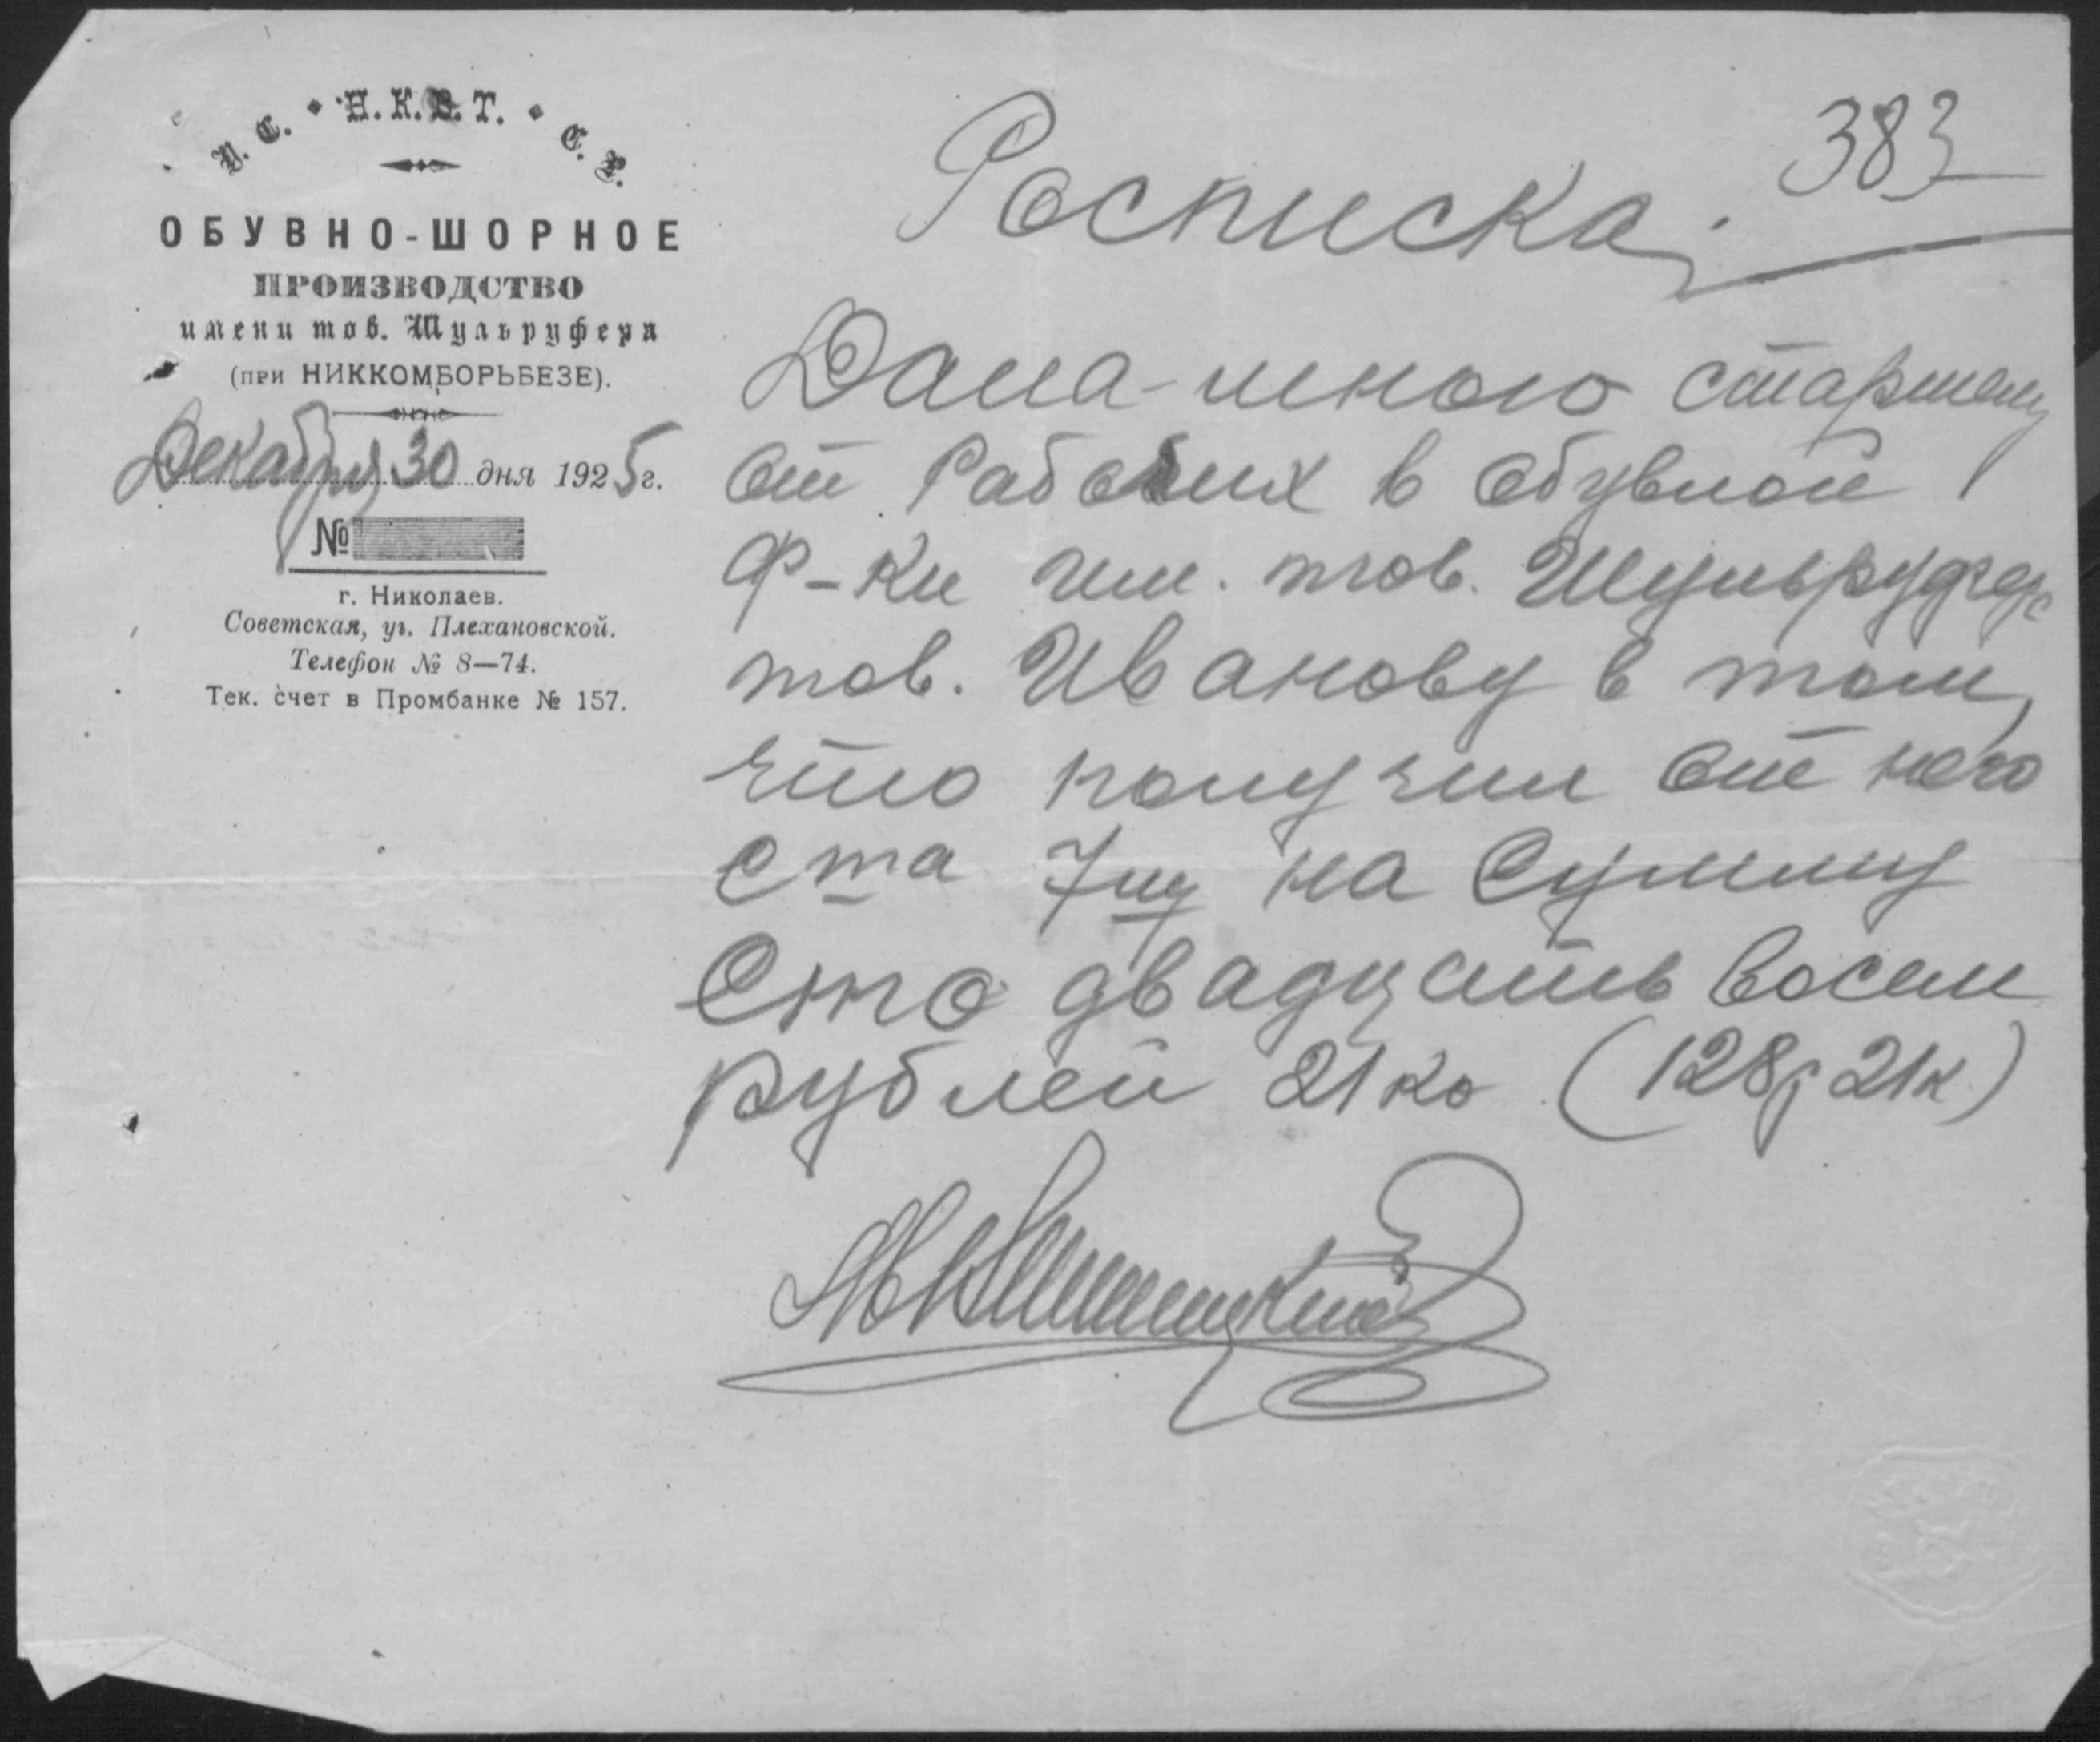 У. С. • Н. К. В. Т. • С. Р.
ОБУВНО-ШОРНОЕ
ПРОИЗВОДСТВО
имени тов. Шульруфера
(при НИККОМБОРЬБЕЗЕ).
Декабря 30 дня 1925 г.
№
г. Николаев.
Советская, уг. Плехановской.
Телефон № 8—74.
Тек. счет в Промбанке № 157.
383
Росписка
Дана мною старшему
от Рабочих в обувной
Ф-ки им. тов. Шульруфера
тов. Иванову в том,
что получил от него
на сумму
Сто двадцать восем
рублей 21 ко (128 р 21 к)